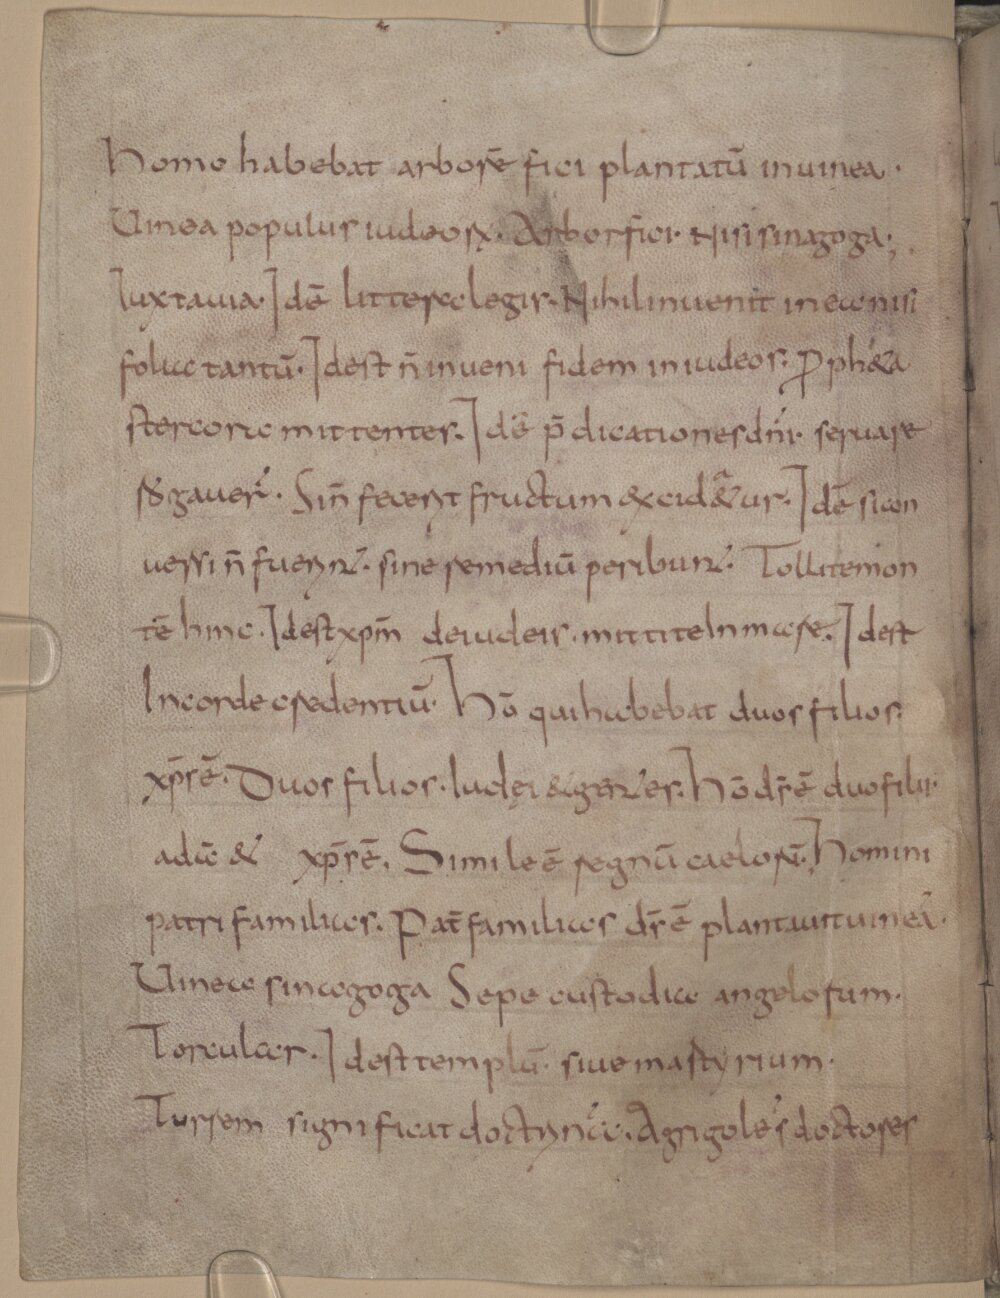 Homo habebat arborē fici plantatū inuinea·
Uinea populus iudeoꝝ· Arbor fici· Nisi sinagoga;
Iuxta uia· Idē litteras legis· Nihil inuenit in ea nisi
folia tantū· Idest n̄ inueni fidem in iudeos· ꝓph&a
stercora mittentes. Idē p̄dicationes dn̄i· seruare
Sin̄ fecerit fructum excid&ur· Idē si con
uersi n̄ fuerint· sine remediū peribunt· Tollite mon
tē hinc· Idest xp̄m de iudeis· mittite In mare. Idest
In corde credentiū· Hō qui habebat duos filios·
xp̄s ē· Duos filios· Iudei & gentes· Hō ds̄ ē duo filii·
adā & xp̄s ē. Simile ē regnū caeloꝝ· homini
patri familias. Pat̄ familias ds̄ ē plantauit uineā·
Uinea sinagoga Sepe custodia angelorum·
Torcular· Idest templū· siue martyrium·
Turrem significat doctrina· Agricole doctores